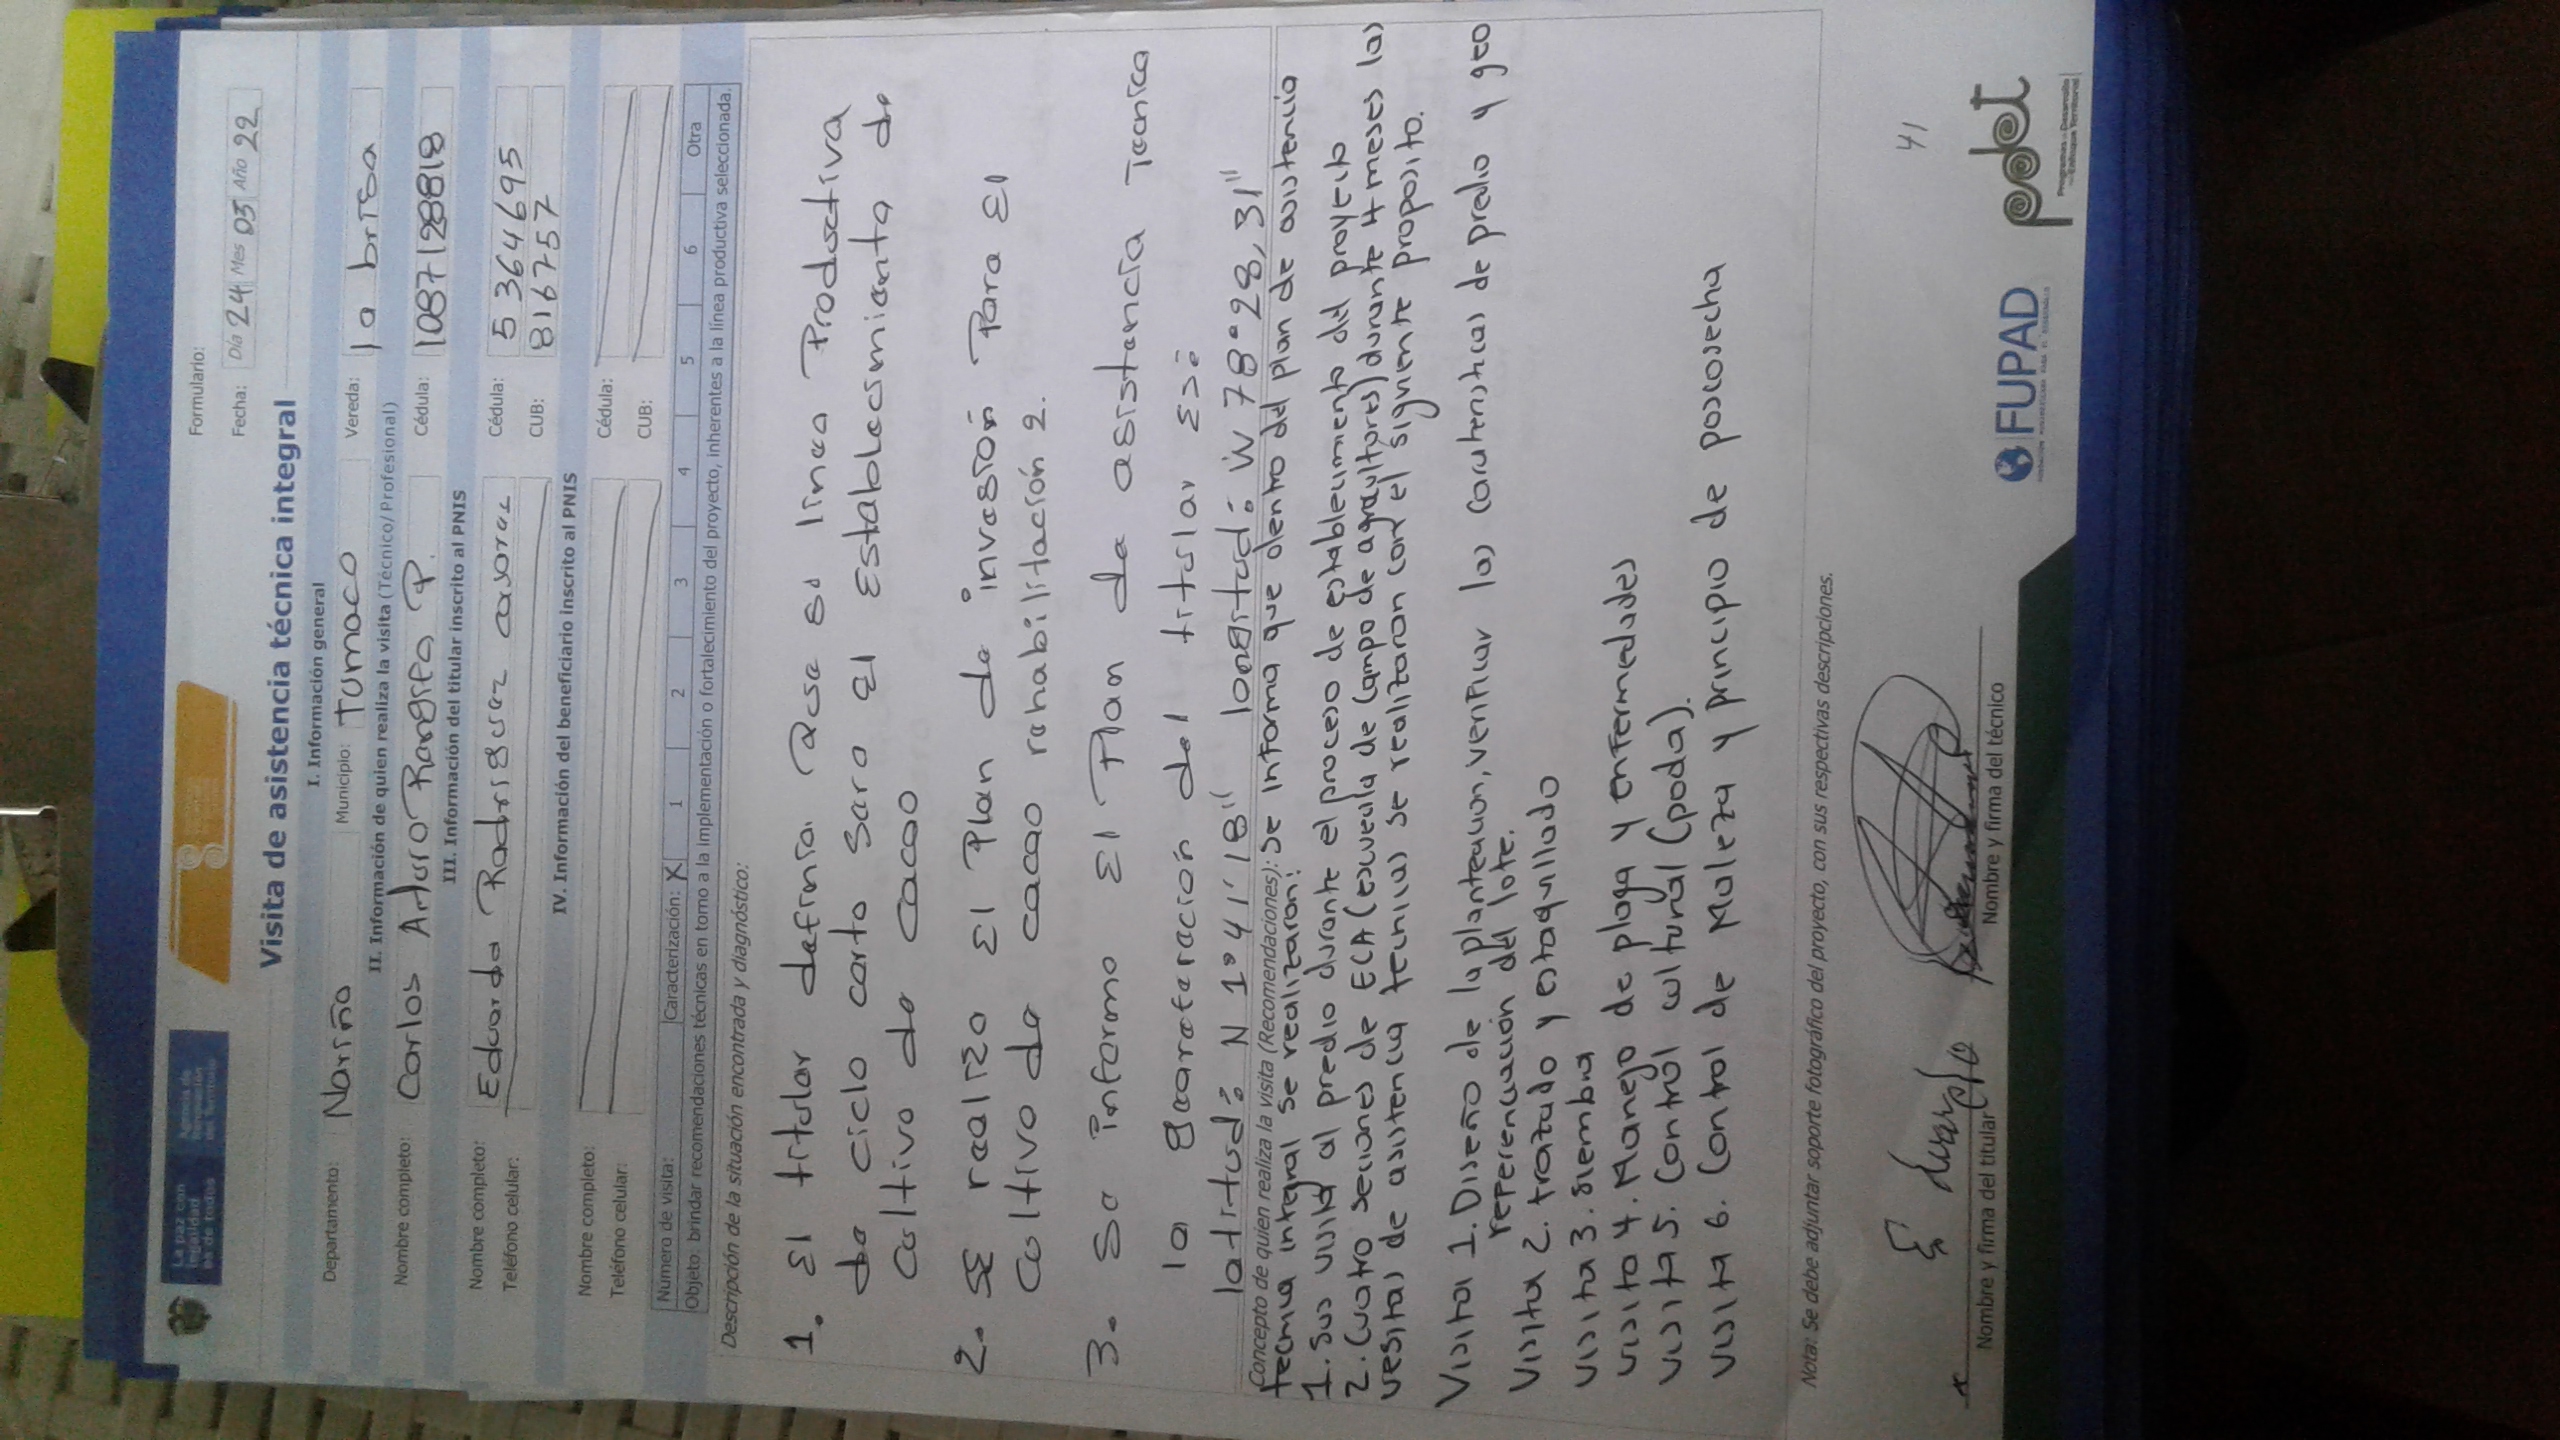 La paz con legalidad es de todos
Agencia de Renovación del Territorio
Formulario:
Fecha: Día 24 Mes 05 Año 22
Visita de asistencia técnica integral
I. Información general
Departamento: Nariño Municipio: Tumaco Vereda: la brisa
II. Información de quien realiza la visita (Técnico/Profesional)
Nombre completo: Carlos Arturo Rangifo P. Cédula: 1087128818
III. Información del titular inscrito al PNIS
Nombre completo: Eduardo Rodriguez casares Cédula: 5364695
Teléfono celular: CUB: 8167257
IV. Información del beneficiario inscrito al PNIS
Nombre completo: Cédula:
Teléfono celular: CUB:
Número de visita: Caracterización: X 1 2 3 4 5 6 Otra
Objeto: brindar recomendaciones técnicas en torno a la implementación o fortalecimiento del proyecto, inherentes a la línea productiva seleccionada.
Descripción de la situación encontrada y diagnóstico:
1. El titular definio Que su linea Productiva
de ciclo corto Sara El Establecimiento de
Cultivo de cacao
2. SE realizo El Plan de invasión Para El
Cultivo de cacao rahabilitación 2.
3. Se informo El Plan de asistencia Tecnica
la gaorateración del titular Es:
latitud: N 1°41'18" longitud: W 78°28,31"
Concepto de quien realiza la visita (Recomendaciones): Se informa que dentro del plan de asistencia
tecnica integral se realizaron:
1. Sus visita al predio durante el proceso de establecimiento del proyecto
2. Cuatro seciones de ECA (escuela de campo de agricultores) durante 4 meses las
vesitas de asistencia tecnicas se realizaron con el siguiente proposito.
Visita 1. Diseño de la planteacion, verificar las caracteristicas de predio y geo
referenciación del lote.
Visita 2. trazado y estaquillado
visita 3. siembra
visita 4. Manejo de plaga y enfermedades
visita 5. Control cultural (poda).
visita 6. Control de Maleza y principio de poscosecha
Nota: Se debe adjuntar soporte fotográfico del proyecto, con sus respectivas descripciones.
41
x Eduardo
Nombre y firma del titular
Nombre y firma del técnico
FUPAD
pdet
Programas de Desarrollo con Enfoque Territorial